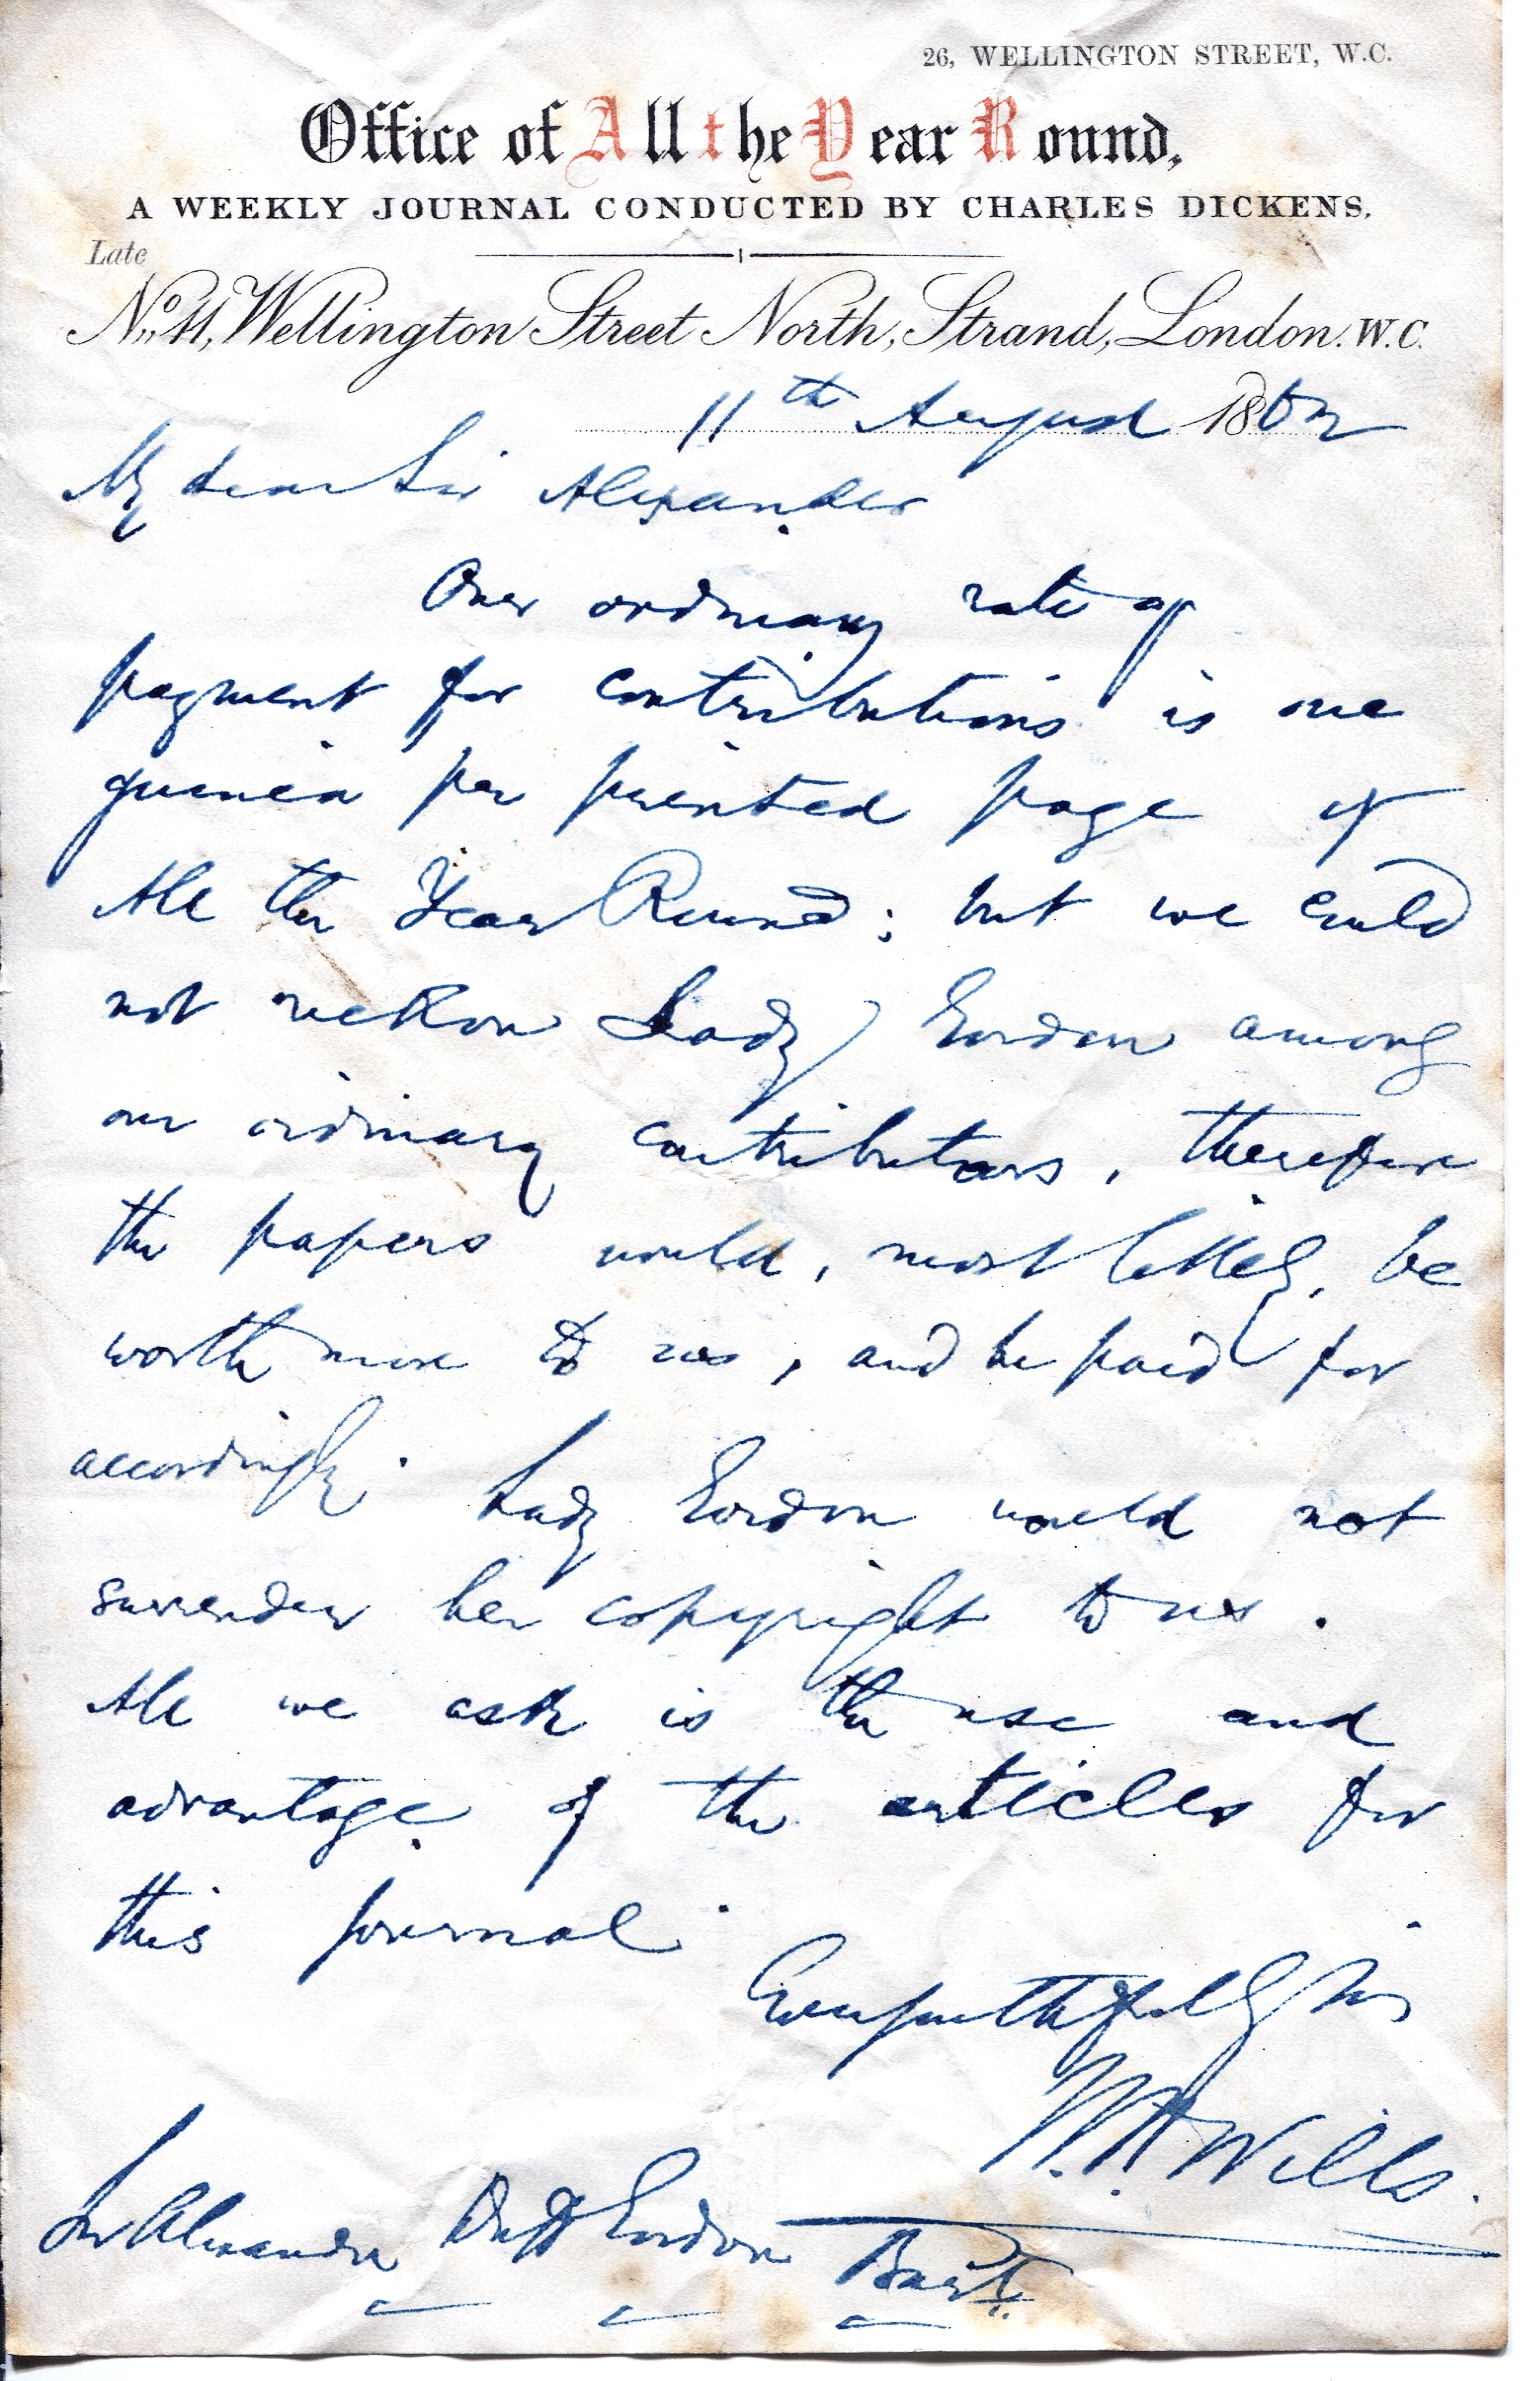 26, WELLINGTON STREET, W.C.
Office of All the Year Round,
A WEEKLY JOURNAL CONDUCTED BY CHARLES DICKENS.
Late
No. 11, Wellington Street North, Strand, London. W.C.
11th August 1862
My dear Sir Alexander
Our ordinary rate of
payment for contributions is one
guinea per printed page of
All the Year Round; but we could
not reckon Lady Gordon among
our ordinary contributors, therefore
the papers would, most likely, be
worth more to us, and be paid for
accordingly. Lady Gordon would not
surrender her copyright to us.
All we ask is the use and
advantage of the articles for
this journal.
Ever faithfully Yrs
W.H. Wills.
Sir Alexander Duff Gordon Bart.